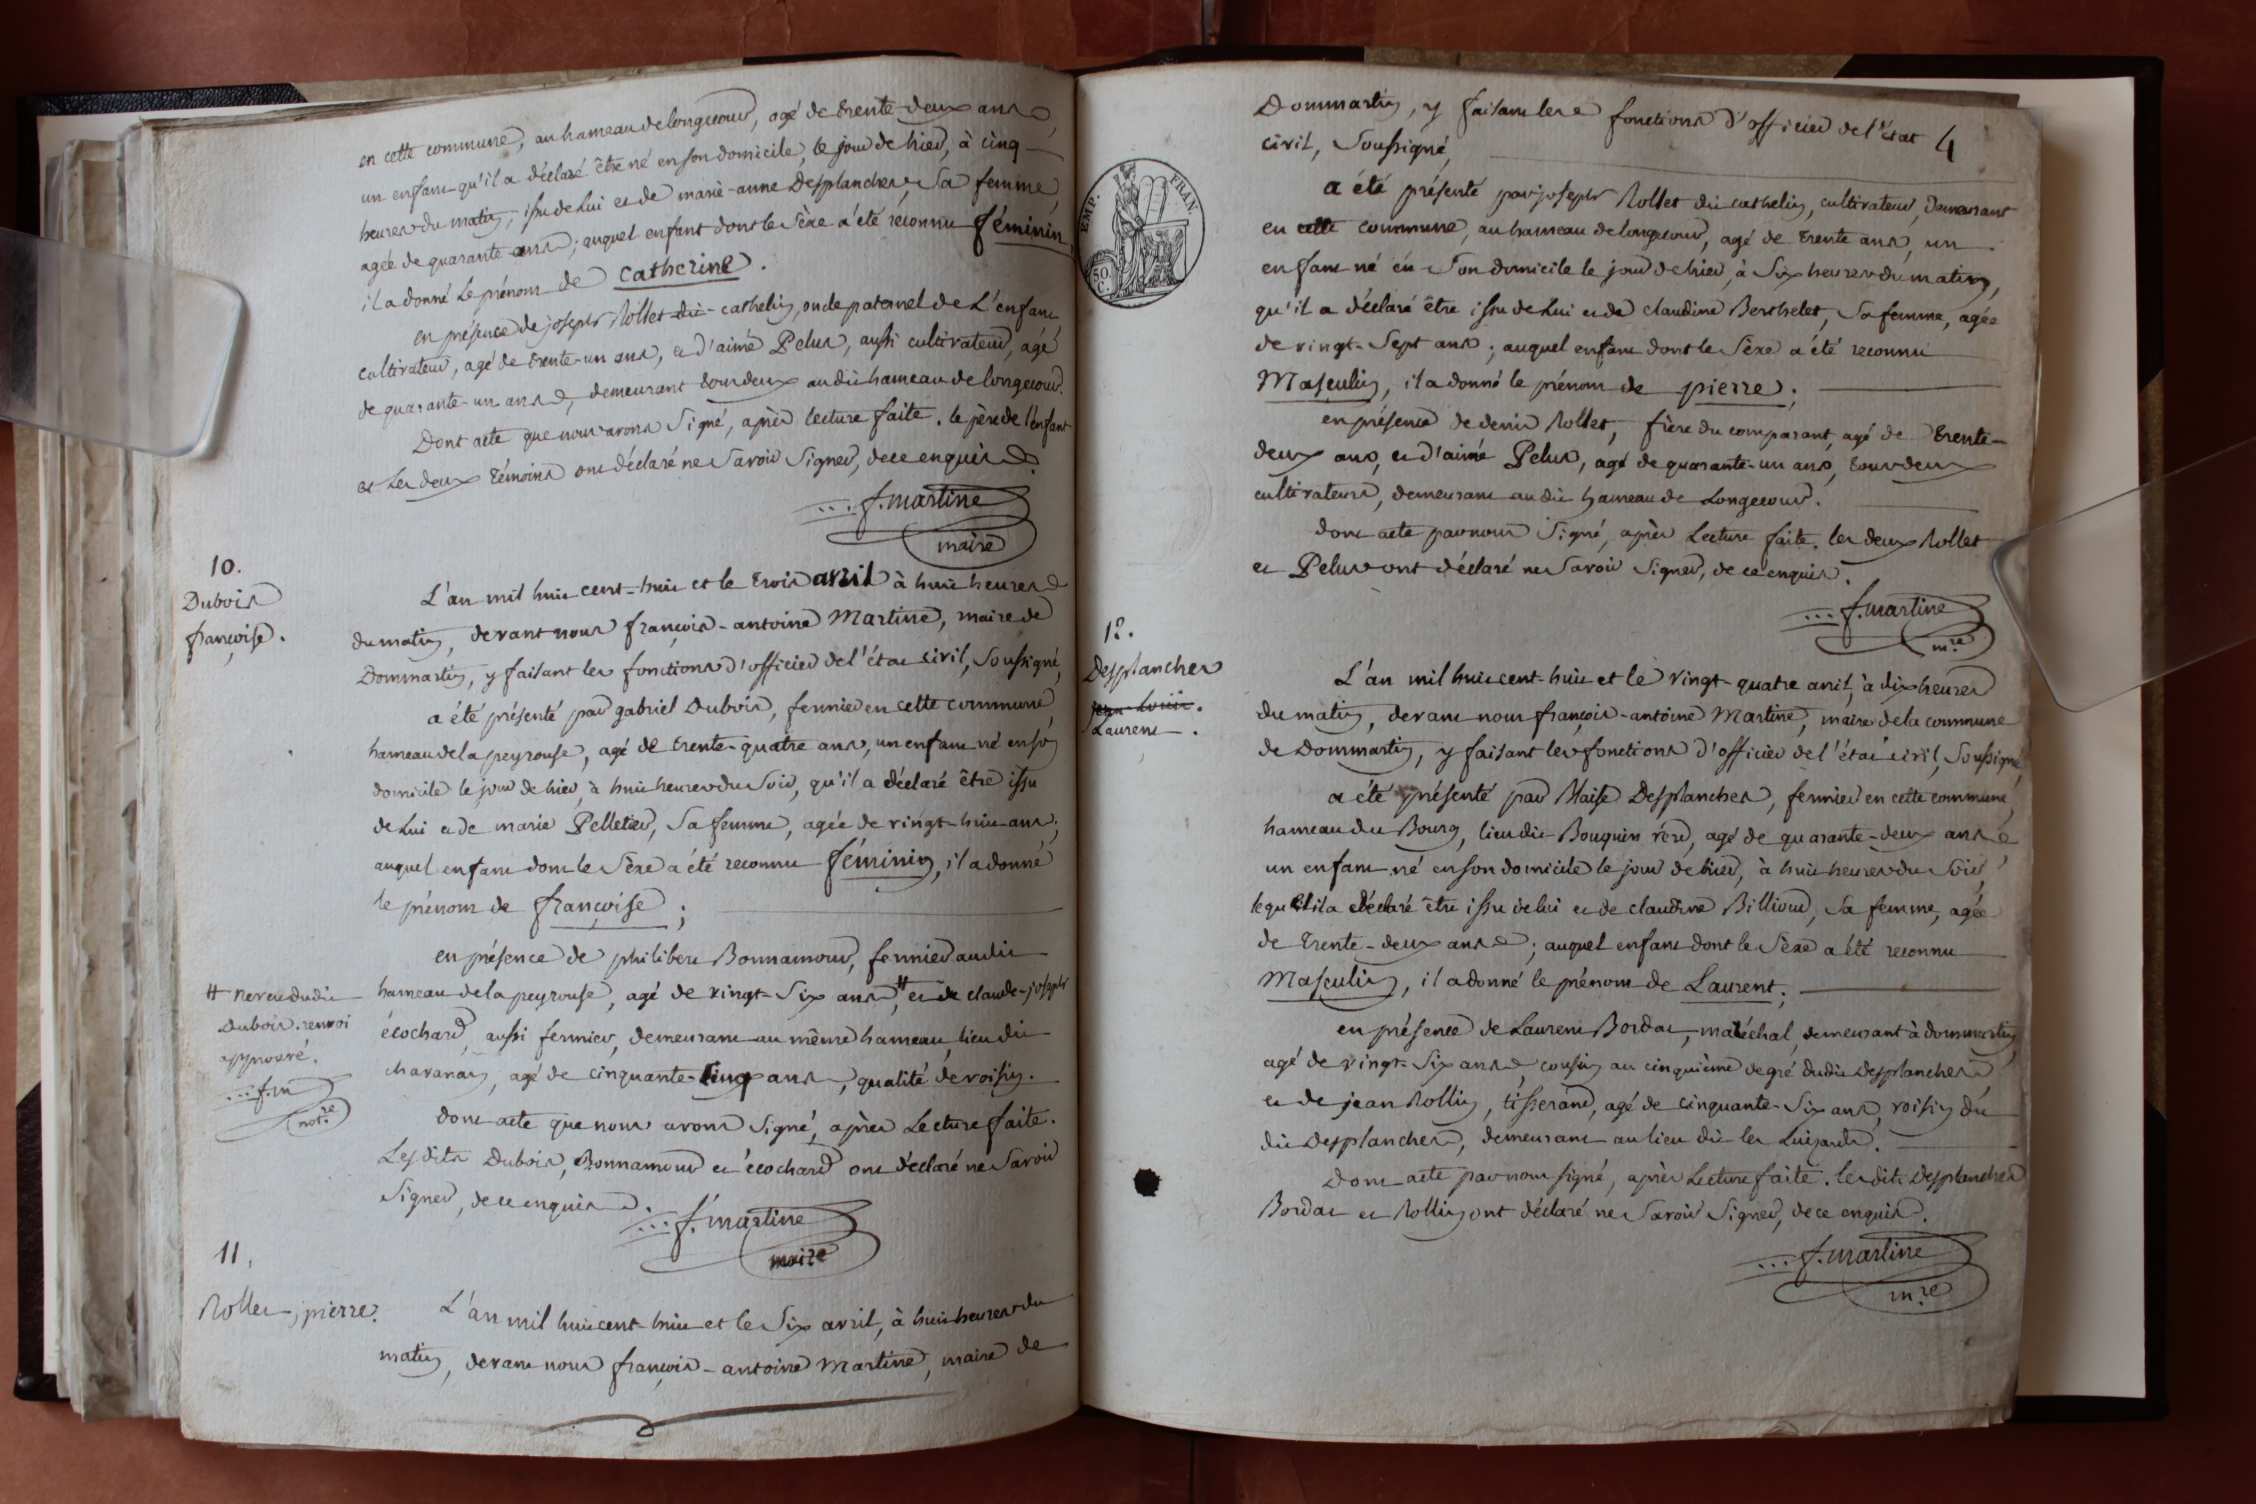 en cette commune, au hameau de longecour, agé de trente-deux ans,
un enfant qu'il a déclaré être né en son domicile, le jour de hier, à cinq
heures du matin, issu de Lui et de marie-anne Desplanches, Sa femme,
agée de quarante ans; auquel enfant dont le Sèxe a été reconnu féminin,
il a donné Le prénom de catherine.
en présence de joseph Rollet dit cathelin, oncle paternel de L'enfant
cultivateur, agé de trente-un ans, et d'aimé Pelus, aussi cultivateur, agé
de quarante-un ans, demeurant tous deux au dit hameau de longecour.
Dont acte que nous avons Signé, après lecture faite. le père de l'enfant
et Les deux témoins ont déclaré ne Savoir Signer, de ce enquis.
f. martine
maire
10.
Dubois
françoise.
L'an mil huit cent-huit et le trois avril à huit heures
du matin, devant nous françois-antoine Martine, maire de
Dommartin, y faisant les fonctions d'officier de l'état civil, Soussigné,
a été présenté par gabriel Dubois, fermier en cette commune,
hameau de la peyrouse, agé de trente-quatre ans, un enfant né en son
domicile le jour de hier, à huit heures du Soir, qu'il a déclaré être issu
de Lui et de marie Pelletier, Sa femme, agée de vingt-huit ans;
auquel enfant dont le Sèxe a été reconnu féminin, il a donné
le prénom de françoise;
en présence de philibert Bonnamour, fermier audit
hameau de la peyrouse, agé de vingt-Six ans, # et de claude-joseph
écochard, aussi fermier, demeurant au même hameau, lieu dit
chavanay, agé de cinquante-cinq ans, qualité de voisin.
# neveu dudit
Dubois. renvoi
approuvé.
f. m
not.re
dont acte que nous avons Signé, après Lecture faite.
Lesdits Dubois, Bonnamour et écochard ont déclaré ne Savoir
Signer, de ce enquis.
f. martine
maire
11.
Rollet, pierre.
L'an mil huit cent-huit et le Six avril, à huit heures du
matin, devant nous françois-antoine Martine, maire de
4
Dommartin, y faisant les fonctions d'officier de l'état
civil, Soussigné,
EMP. FRAN.
50 C.
a été présenté par joseph Rollet dit cathelin, cultivateur, demeurant
en cette commune, au hameau de longecour, agé de trente ans, un
enfant né en Son domicile le jour de hier, à Six heures du matin,
qu'il a déclaré être issu de Lui et de claudine Berthelet, Sa femme, agée
de vingt-Sept ans; auquel enfant dont le Sèxe a été reconnu
Masculin, il a donné le prénom de pierre;
en présence de denis Rollet, frère du comparant, agé de trente-
deux ans, et d'aimé Pelus, agé de quarante-un ans, tous deux
cultivateurs, demeurant au dit hameau de Longecour.
dont acte par nous Signé, après Lecture faite. les deux Rollet
et Pelus ont déclaré ne Savoir Signer, de ce enquis.
f. martine
m.re
12.
Desplanches
jean-Louis.
Laurent.
L'an mil huit cent-huit et le vingt-quatre avril, à dix heures
du matin, devant nous françois-antoine Martine, maire de la commune
de Dommartin, y faisant les fonctions d'officier de l'état civil, Soussigné,
a été présenté par Blaise Desplanches, fermier en cette commune,
hameau du Bourg, lieu dit Bouquin verd, agé de quarante-deux ans,
un enfant né en son domicile le jour de hier, à huit heures du Soir,
lequel il a déclaré être issu de lui et de claudine Billioud, Sa femme, agée
de trente-deux ans; auquel enfant dont le Sèxe a été reconnu
Masculin, il a donné le prénom de Laurent;
en présence de Laurent Bordat, maréchal, demeurant à dommartin,
agé de vingt-Six ans, cousin au cinquième degré dudit Desplanches
et de jean Rollin, tisserand, agé de cinquante-Six ans, voisin du
dit Desplanches, demeurant au lieu dit les Luizards.
Dont acte par nous signé, après Lecture faite. lesdits Desplanches
Bordat et Rollin ont déclaré ne Savoir Signer, de ce enquis.
f. martine
m.re